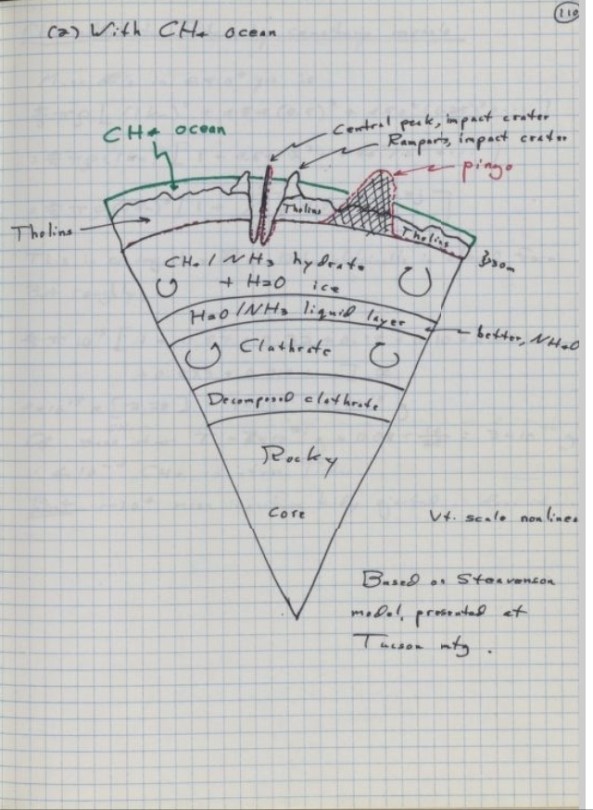 110
(2) With CH4 ocean
CH4 ocean
Central peak, impact crater
Ramparts, impact crater
pingo
Tholins
Tholins
Tholins
30m
CH4/NH3 hydrate
+ H2O ice
H2O/NH3 liquid layer
better, NH4O
Clathrate
Decomposed clathrate
Rocky
core
Vt. scale nonlinea
Based on Steavenson
model, presented at
Tucson mtg.